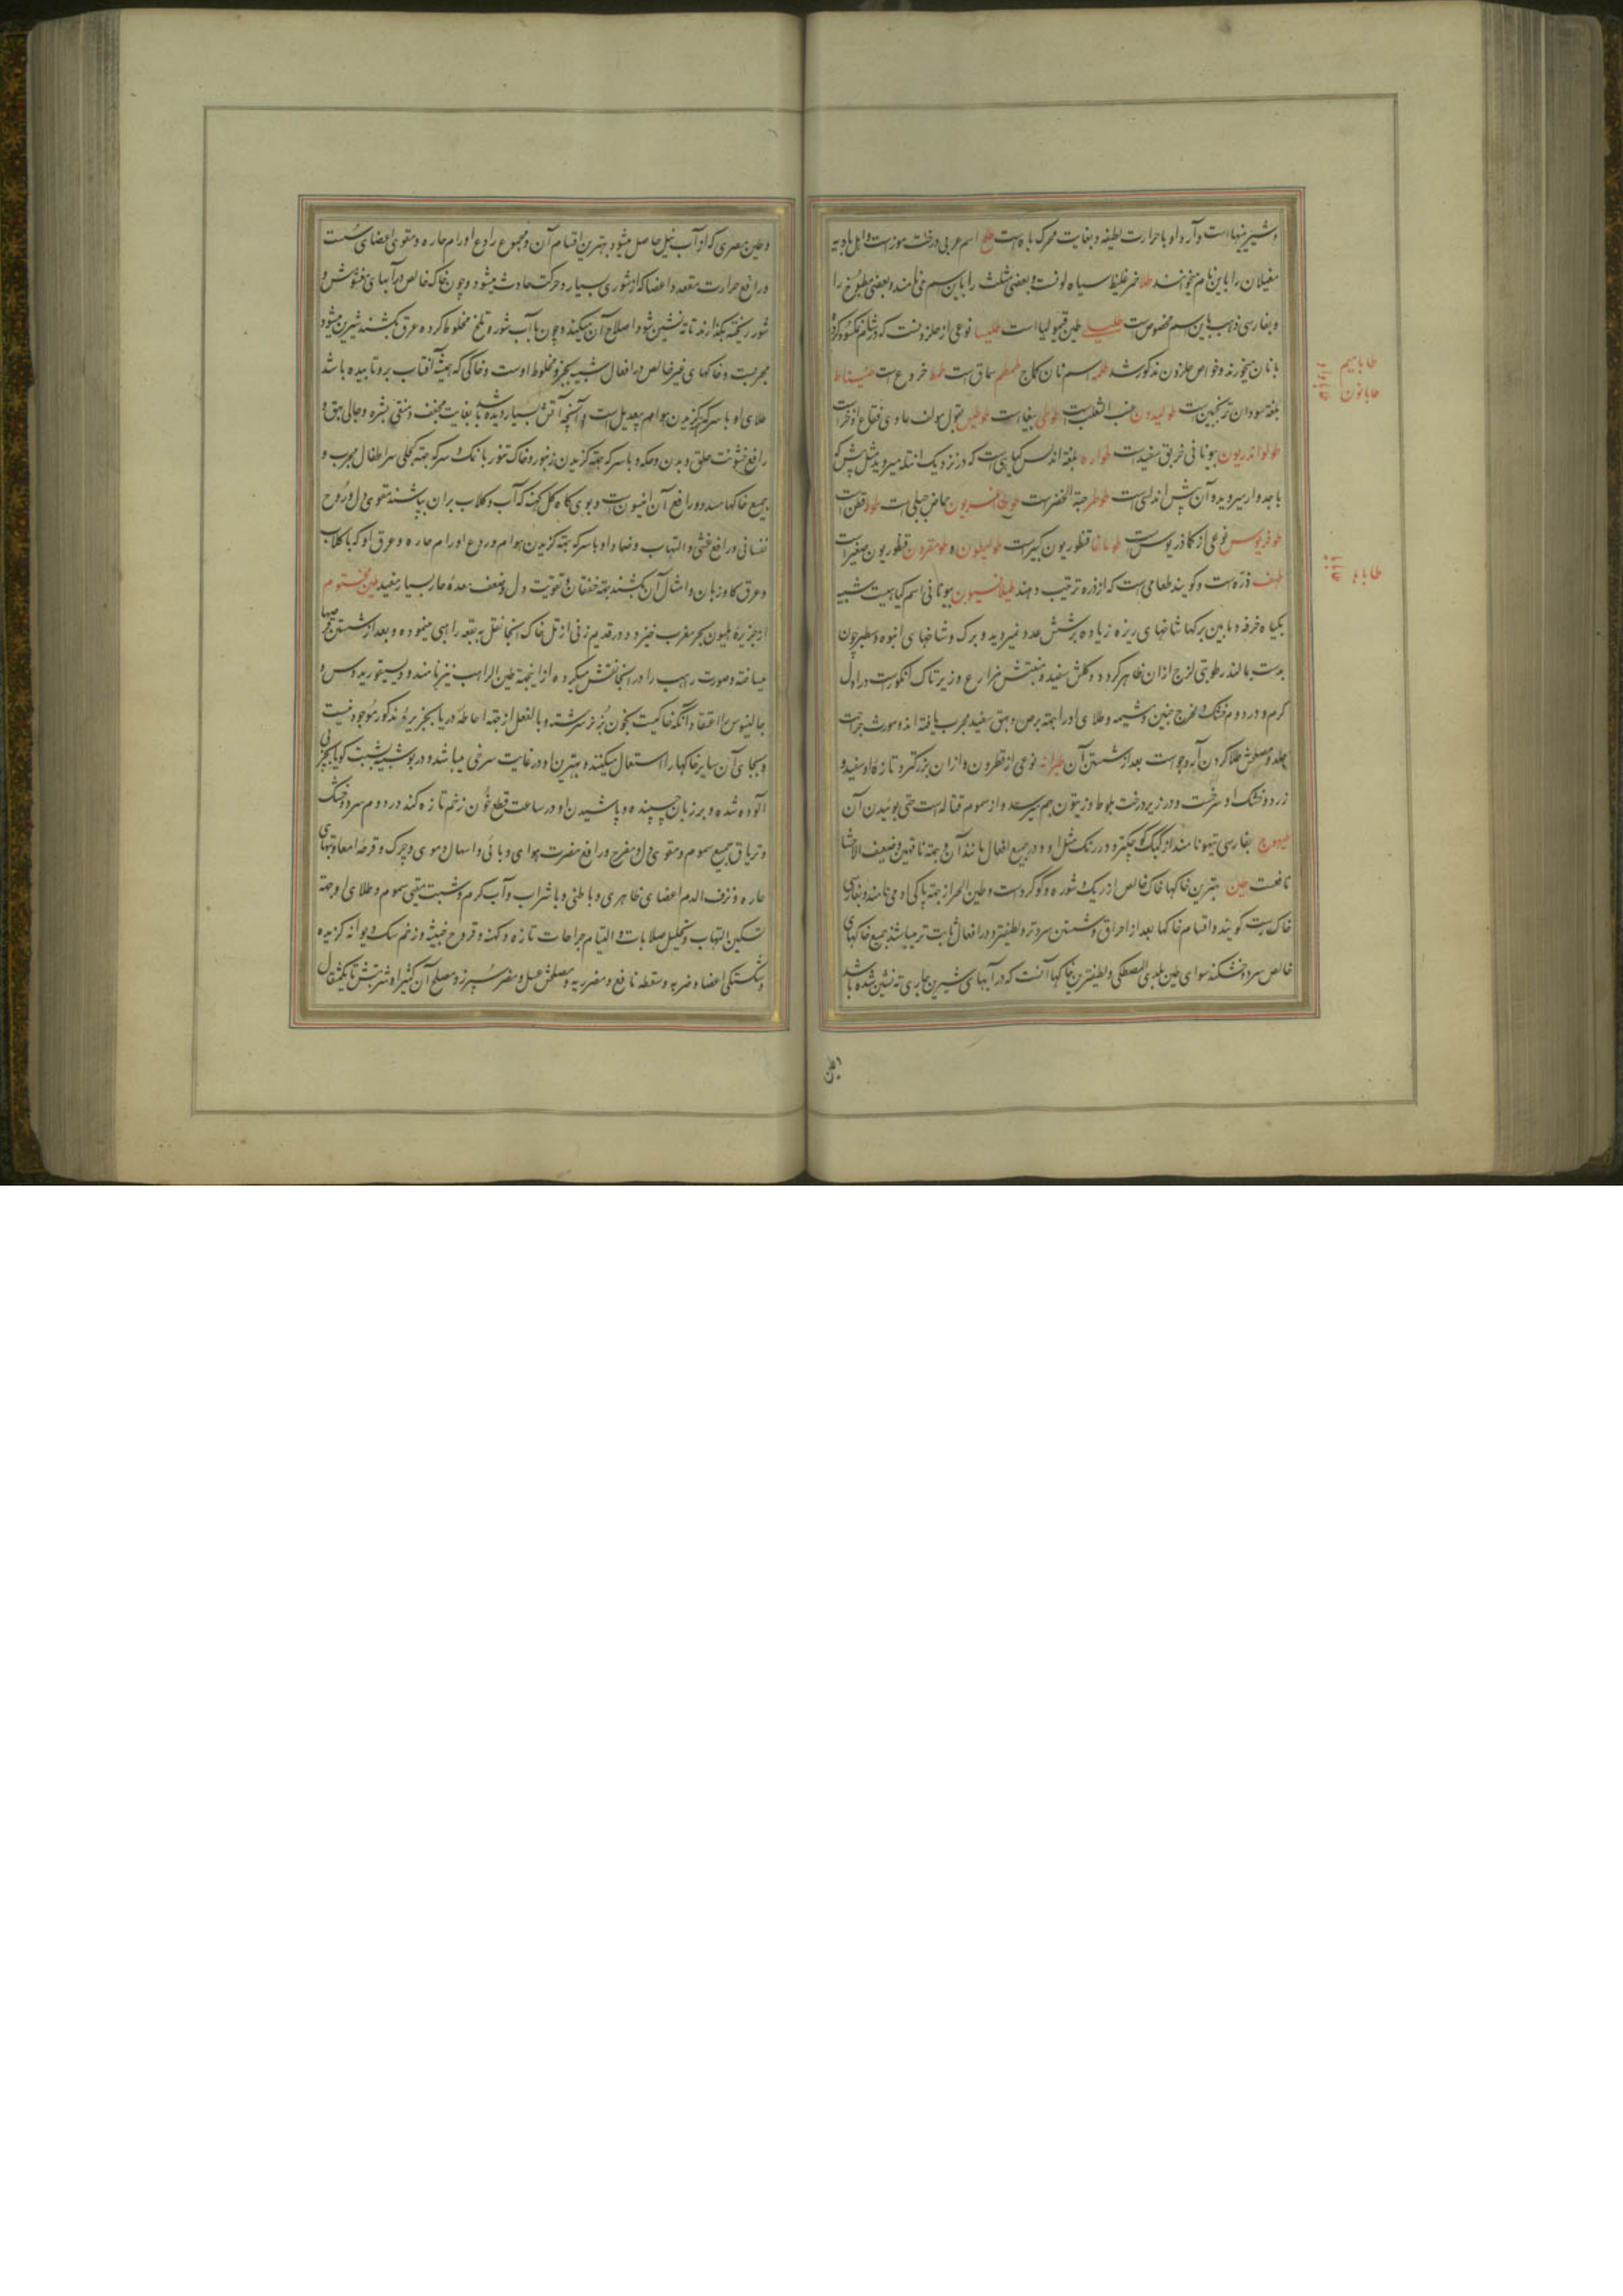 و شیرینیهاست و آرد او با حرارت لطیفه و بغایت محرک باه است طلح اسم عربی درخت موز است و اهل بادیه
مغیلان را باین نام میخوانند طلا خمر غلیظ سیاه لونست و بعضی مثلث را باین اسم می‌نامند و بعضی مطبوخ را
و بفارسی ذهب باین اسم مخصوص است طین قیمولیا است نوعی از حلزونست که در شام
با نان میخورند و خواص حلزون مذکور شد طلمه اسم نان کماج طمطم سماق است طمط خروع است
بلغة سودان ترنجبین است طولیدون عنب الثعلب است طوطی ببغا است طوطیس بقول مولف حاوی فقاع اذخر است
طولواندریون بیونانی خربق سفید است طواره بلغة اندلس گیاهی است که در نزدیک میروید مثل پیش که
با جدوار میروید و آن پیش اندلسی است طوطر حبة الخضر است حماض جبلی است طوط قطن است
طوفریوس نوعی از کماذریوس است طوماغا قنطوریون کبیر است طولیطون و طومقرون قنطوریون صغیر است
طهف ذره است و گویند طعامی است که از ذره ترتیب دهند طیلافیون بیونانی اسم گیاهیست شبیه
بگیاه خرفه و مابین برگها شاخهای ریزه زیاده بر شش عدد نمیروید و برگ و شاخهای انبوه و سطبر چون
بدست بمالند رطوبتی لزج از آن ظاهر گردد و گلش سفید و منبتش مزارع و زیر تاک انگور است در اول
گرم و در دوم خشک و مخرج جنین و مشیمه و طلای او را بجهة برص و بهق سفید مجرب یافته‌اند و مورث جراحت
جلد و مصلحش طلا کردن آرد جو است بعد از شستن آن طیرانه نوعی از فطرون و از آن بزرگتر و تازه او سفید و
زرد و خشک او سرخست و در زیر درخت بلوط و زیتون بهم میرسد و از سموم قتاله است حتی بوئیدن آن
طیهوج بفارسی تیهو نامند از کبک کوچکتر و در رنگ مثل او و در جمیع افعال مانند آن و بجهة ناقهین و ضعیف الاحشا
نافعست طین بهترین خاکها خاک خالص از ریگ و شوره و گوگرد است و طین الحر از جهة پاکی او می‌نامند و بفارسی
خاک رست گویند و اقسام خاکها بعد از احراق و شستن سردتر و لطیفتر و در افعال ثابت‌تر میباشد جمیع خاکهای
خالص سرد و خشکند سوای طین بلدی المصطکی و لطیفترین خاکها آنست که در آبهای شیرین جاری ته نشین شده باشد
طابا
و طین مصری که از آب نیل حاصل میشود بهترین اقسام آن و مجموع رادع اورام حاره و مقوی اعضای سست
و رافع حرارت مقعد و اعضا که از شوری بسیار و حرکت حادث میشود و چون خاک خالص در آبهای مغشوش و
شور ریخته بگذارند تا ته نشین شود اصلاح آن میکند و چون با آب شور و تلخ مخلوط کرده عرق بکشند شیرین میشود
مجربست و خاکهای غیر خالص در افعال شبیه بجزو مخلوط اوست و خاکی که همیشه آفتاب بر و تابیده باشد
طلای او با سرکه گزیدن هوام بیعدیل است و آنچه آتش بسیار دیده باشد بغایت مجفف و منقی بشره و جالی بهق و
رافع خشونت حلق و بدن و حکه و با سرکه جهة گزیدن زنبور و خاک تنور با نمک و سرکه جهة کچلی سر اطفال مجرب و
جمیع خاکها مسدد و رافع آن افیونست و بوی کاه گل کهنه که آب و گلاب بران بپاشند مقوی دل و روح
نفسانی و رافع غشی و التهاب و ضماد او با سرکه بجهة گزیدن هوام و ردع اورام حاره و عرق او که با گلاب
و عرق گاوزبان و امثال آن بکشند بجهة خفقان و تقویت دل و ضعف معدهٔ حار بسیار مفید طین مختوم
از جزیرهٔ بحر مغرب خیزد و در قدیم زنی از تل خاک آنجا نقل به بقعه راهبی مینموده و بعد از شستن قرصها
میساخته و صورت راهب را در آنجا نقش میکرده از اینجهة طین الراهب نیز نامند و دیسقوریدوس و
جالینوس را اعتقاد آنکه خاکیست بخون بز نر سرشته و بالفعل از جهة احاطهٔ دریا بجزیرهٔ مذکور موجود نیست
و بجای آن سایر خاکها را استعمال میکنند و بهترین او در غایت سرخی میباشد و در بو شبیه بشبت گویا بچربی
آلوده شده و بر زبان چسپنده و پاشیدن او در ساعت قطع خون زخم تازه کند در دوم سرد و خشک
و تریاق جمیع سموم و مقوی دل و مفرح و رافع مضرت هوای وبائی و اسهال دموی و چرک و قرحهٔ امعا و تبهای
حاره و نزف الدم اعضای ظاهری و باطنی و با شراب و آب گرم و شبت مقیی سموم و طلای او جهة
تسکین التهاب و تحلیل صلابات و التیام جراحات تازه و کهنه و قروح خبیثه و زخم سگ دیوانه گزیده
و شکستگی اعضا و ضربه و سقطه نافع و مضر ریه و مصلحش عسل و مضر سپرز و مصلح آن کثیرا و شربتش تا یکمثقال